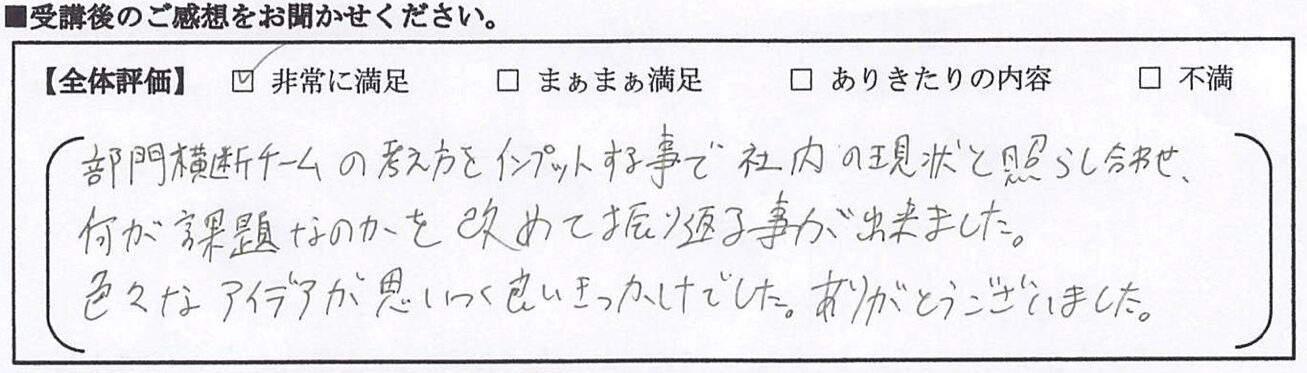 ■受講後のご感想をお聞かせください。
【全体評価】 ☑ 非常に満足 □ まぁまぁ満足 □ ありきたりの内容 □ 不満
部門横断チームの考え方をインプットする事で社内の現状と照らし合わせ、
何が課題なのかを改めて振り返る事が出来ました。
色々なアイデアが思いつく良いきっかけでした。ありがとうございました。